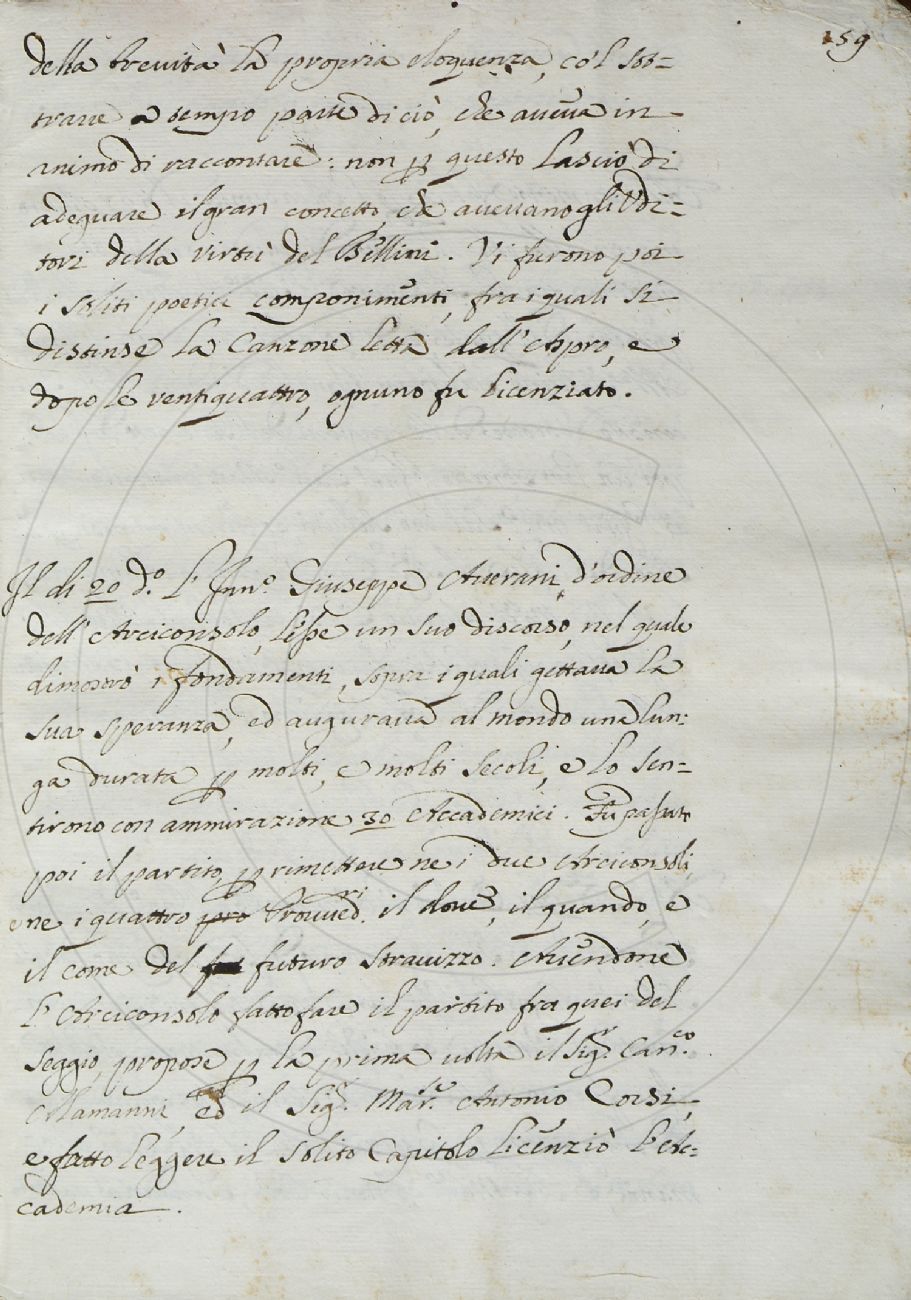 159
della brevità la propria eloquenza, co'l sot=
trarre a tempo parte di ciò, che aveva in
animo di raccontare: non p questo lasciò di
adeguare il gran concetto, che avevano gli Udi=
tori della virtù del Bellini. Vi furono poi
i soliti poetici componimenti, fra i quali si
distinse la Canzone letta dall'Apro, e
dopo le ventiquattro, ognuno fu licenziato.
Il di 20 d.º l'Inn.º Giuseppe Averani, d'ordine
dell'Arciconsolo, lesse un suo discorso, nel quale
dimostrò i fondamenti, sopra i quali gettava la
sua speranza, ed augurava al mondo una lun=
ga durata p molti, e molti secoli, e lo sen=
tirono con ammirazione 30 Accademici. Fu passato
poi il partito p rimettere ne i due Arciconsoli,
e ne i quattro pro Provved.ri il dove, il quando, e
il come del fu futuro stravizzo. Avendone
l'Arciconsolo fatto fare il partito fra quei del
seggio, propose p la prima volta il Sig.r Can.co
Alamanni, ed il Sig.r Mar.e Antonio Corsi,
e fatto leggere il solito Capitolo licenziò l'Ac=
cademia.